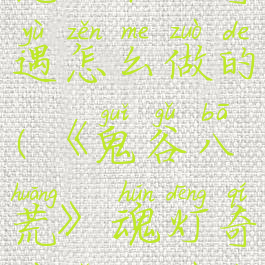 yù zěn me zuò de
遇怎么做的
guǐ gǔ bā
(《鬼谷八
huāng hún dēng qí
荒》魂灯奇